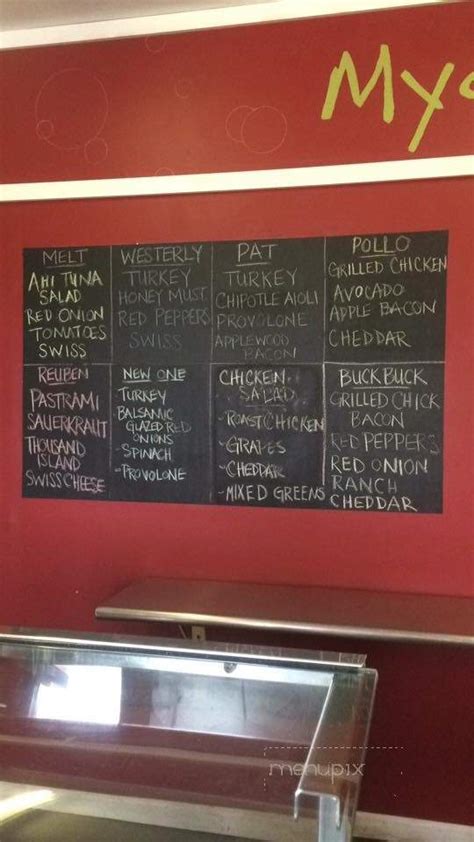 My
MELT
AHI TUNA
SALAD
RED ONION
TOMATOES
SWISS
WESTERLY
TURKEY
HONEY MUST.
RED PEPPERS
SWISS
PAT
TURKEY
CHIPOTLE AIOLI
PROVOLONE
APPLEWOOD
BACON
POLLO
GRILLED CHICKEN
AVOCADO
APPLE BACON
CHEDDAR
REUBEN
PASTRAMI
SAUERKRAUT
THOUSAND
ISLAND
SWISS CHEESE
NEW ONE
TURKEY
BALSAMIC
GLAZED RED
ONIONS
SPINACH
-PROVOLONE
CHICKEN
SALAD
-ROAST CHICKEN
-GRAPES
-CHEDDAR
-MIXED GREENS
BUCKBUCK
GRILLED CHICK
BACON
RED PEPPERS
RED ONION
RANCH
CHEDDAR
menupix